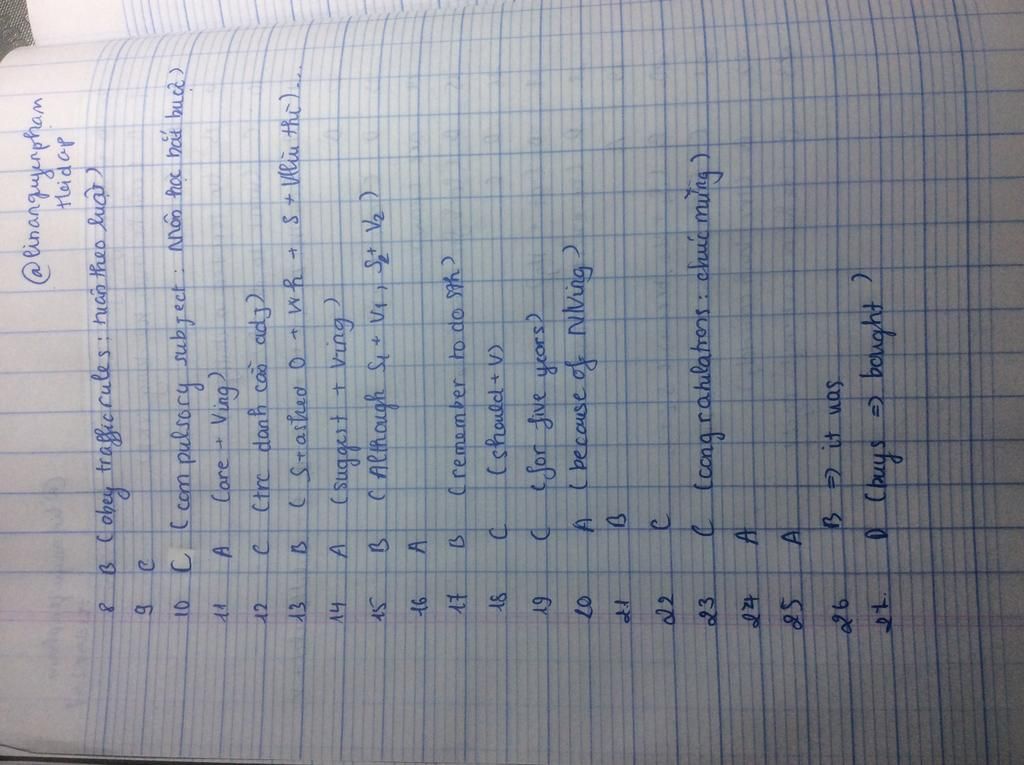 @linanguyenpham
Haidap
8 B (obey traffic rules: tuân theo luật)
9 C
10 C (compulsory subject: môn học bắt buộc)
11 A (are + Ving)
12 C (trc danh cần adj)
13 B (S + asked O + Wh + S + V lùi thì)...
14 A (suggest + Ving)
15 B (Although S1 + V1, S2 + V2)
16 A
17 B (remember to do sth)
18 C (should + V)
19 C (for five years)
20 A (because of N/Ving)
21 B
22 C
23 C (congratulations: chúc mừng)
24 A
25 A
26 B => it was
27. D (buys => bought)